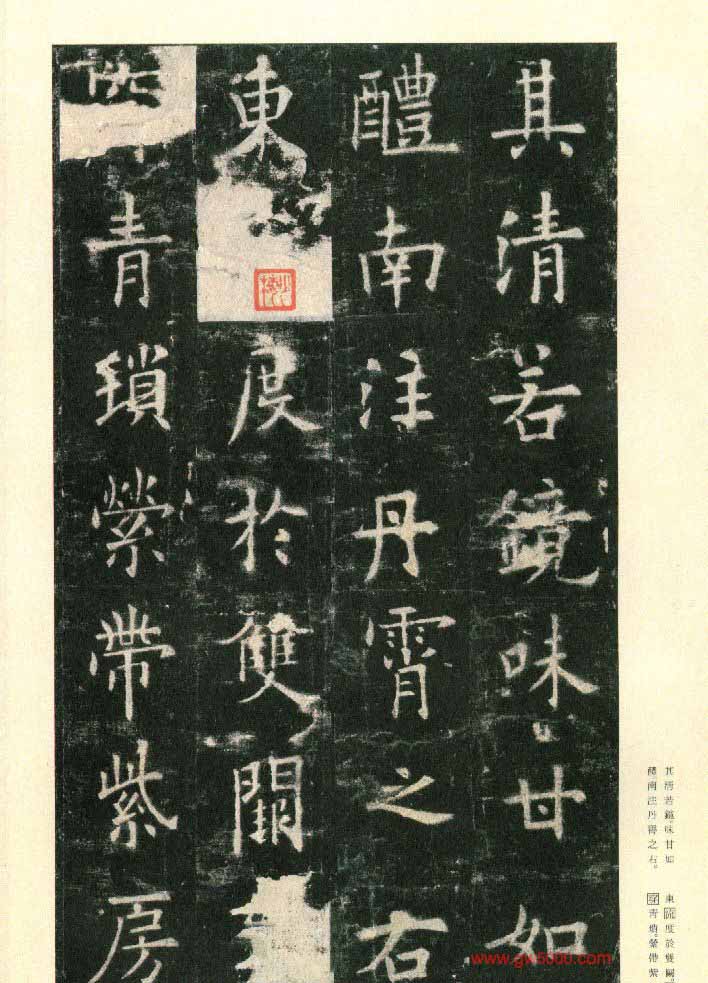 其清若鏡味甘如
醴南注丹霄之右
東度於雙闕
青瑣縈帶紫房
其清若鏡。味甘如
醴。南注丹霄之右。
東流度於雙闕。
青瑣。縈帶紫
www.gw5000.com